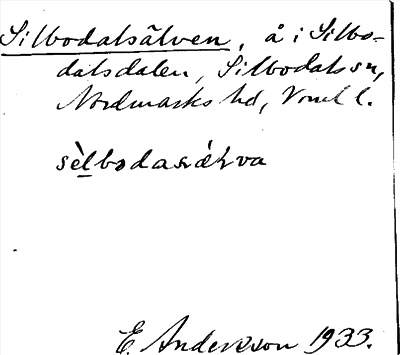 Silbodalsälven, å i Silbo-
dalsdalen, Silbodals sn,
Nordmarks hd, Vrml l.
sèlbodasǽɽva
E. Andersson 1933.